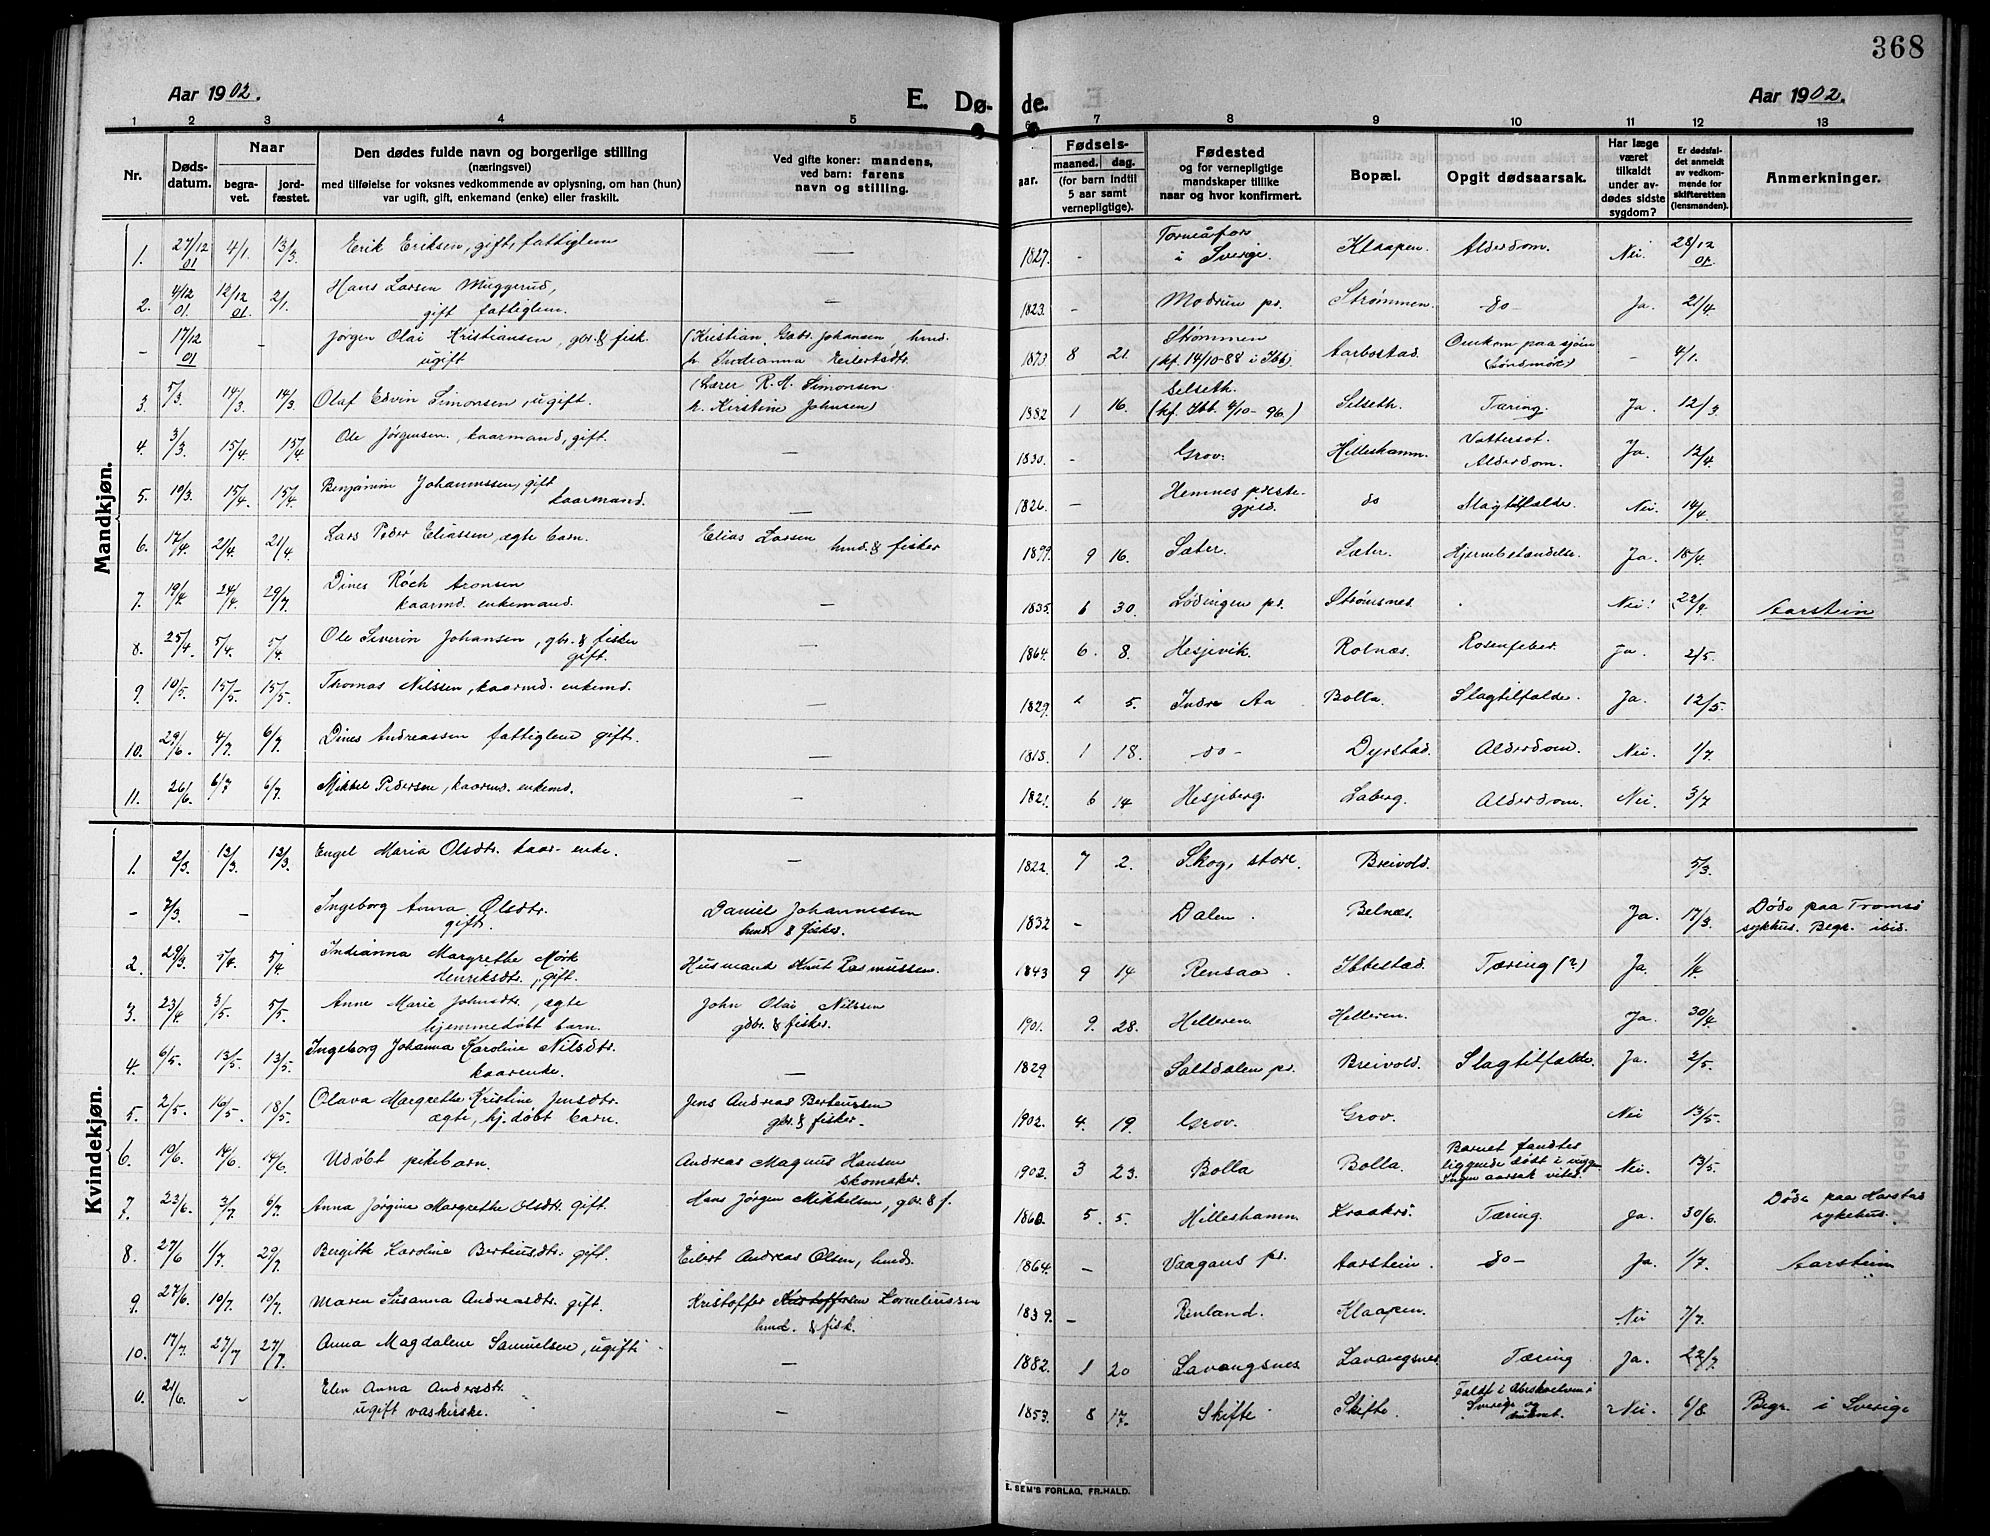 368
Aar 1902.
E. Dø- de.
Aar 1902.
1 2 3 4 5 6 7 8 9 10 11 12 13
Nr.
Døds-
datum.
Naar
begra-
vet.
jord-
fæstet.
Den dødes fulde navn og borgerlige stilling
(næringsvei)
med tilføielse for voksnes vedkommende av oplysning, om han (hun)
var ugift, gift, enkemand (enke) eller fraskilt.
Ved gifte koner: mandens,
ved barn: farens
navn og stilling.
aar.
Fødsels-
maaned. dag.
(for barn indtil
5 aar samt
vernepligtige).
Fødested
og for vernepligtige
mandskaper tillike
naar og hvor konfirmert.
Bopæl.
Opgit dødsaarsak.
Har læge
været
tilkaldt
under av-
dødes sidste
sygdom?
Er dødsfal-
det anmeldt
av vedkom-
mende for
skifteretten
(lensmanden).
Anmerkninger.
Mandkjøn.
1. 27/12 01 4/1. 13/3 Erik Eriksen, gift, fattiglem — 1827. - Torneåfors i Sverige. Klaapen. Alderdom. Nei. 28/12 01.
2. 4/12 01. 12/12 01 2/1. Hans Larsen Muggerud, gift fattiglem. — 1823. - Modum ps. Strømmen. do Ja. 21/4.
- 17/12 01 - Jørgen Olai Kristiansen, gbr. & fisk. ugift (Kristian Gabr. Johansen, hmd. h. Indianna Eilertsdtr. 1873 8 21. Strømmen (kf. 14/10-88 i Ibb). Aarbostad. Omkom paa sjøen - 4/1.
3. 5/3. 14/3 14/3. Olaf Edvin Simonsen, ugift. (Lærer R. A. Simonsen h. Kirstine Johnsen) 1882 1 16. Selseth. (kf. Ibb. 4/10-96.) Selseth. Tæring. Ja. 12/3
4. 3/3. 15/4. 15/4 Ole Jørgensen, kaarmand, gift. — 1830. - Grov. Hilleshamn. Vattersot. Alderdom. Ja. 12/4.
5. 10/3. 15/4. 15/4. Benjamin Johannssen, gift kaarmand. — 1826. - Hemnes preste- gjeld. do Slagtilfælde. Nei. 14/4.
6. 17/4. 21/4. 21/4 Lars Peder Eliassen, ægte barn. Elias Larsen hmd. & fisker 1899. 9 16. Sæter. Sæter. Hjernebetændelse. Ja. 18/4.
7. 19/4. 24/4. 29/7. Dines Røch Aronsen kaarmd. enkemand. — 1835. 6 30. Lødingen ps. Strømsnes. . Nei. 22/4. Aarstein
8. 25/4. 5/4. 5/4. Ole Severin Johansen, gbr. & fisker gift. — 1864. 6. 8. Hesjevik. Rolnæs. Rosenfeber. Ja. 2/5.
9 10/5. 15/5. 15/5. Thomas Nilssen, kaarmd. enkemd. — 1829. 2 5. Indre Aa Bolla. Slagtilfælde. Ja. 12/5.
10. 29/6. 4/7. 6/7. Dines Andreassen fattiglem gift. — 1813. 1 18. do- Dyrstad. Alderdom. Nei. 1/7
11. 26/6. 6/7 6/7. Mikkel Pedersen, kaarmd. enkemd. — 1821. 6 14 Hesjeberg. Laberg. Alderdom. Nei. 3/7
Kvindekjøn.
1. 2/3. 12/3. 12/3. Engel Maria Olsdtr. kaar-enke. — 1822. 7 2. Skog, store. Breivold. 5/3.
- 7/3. - Ingeborg Anna Olsdtr. gift. Daniel Johannessen hmd. & fisker. 1832 - Dalen. Belnæs. Ja. 17/3. Døde paa Tromsø sykhus. Begr. ibid.
2. 29/3. 5/4. 5/4 Indianna Margrethe Mørk Henriksdtr., gift. Husmand Knut Rasmussen. 1843 9 14 Rensaa. Ibbestad. Tæring (?) Ja. 1/4.
3. 23/4 3/5. 5/5. Anne Marie Johnsdtr., ægte hjemmedøbt barn. John Olai Nilssen gbr. & fisker. 1901. 9. 28. Helleren. Helleren. Ja. 30/4.
4. 6/5. 13/5. 13/5. Ingeborg Johanna Karoline Nilsdtr. kaarenke. — 1829 Saltdalen ps. Breivold. Slagtilfælde. Ja. 2/5.
5. 2/5. 16/5. 18/5. Olava Margrethe Kristine Jensdtr. ægte, hj. døbt barn. Jens Andreas Berteussen gbr. & fisker. 1902. 4. 19. Grov. Grov. Nei 13/5.
6. 10/6. 14/6. 14/6. Udøbt pikebarn. Andreas Magnus Hansen skomaker. 1902. 3 23. Bolla Bolla. Barnet fandtes liggende dødt i vuggen Ingen aarsak vites. Nei. 13/5.
7. 23/6. 3/7. 6/7. Anna Jørgine Margrethe Olsdtr. gift. Hans Jørgen Mikkelsen, gbr. & f. 1860. 5. 5. Hilleshamn. Kraakrø. Tæring. Ja. 30/6. Døde paa Harstad sykehus.
8. 27/6 1/7. 29/7. Bergith Karoline Berteusdtr. gift. Eilert Andreas Olsen, hmd. 1864. - Vaagans ps. Aarstein. do- Ja. 1/7. Aarstein
9. 27/6. 10/7. 10/7. Maren Susanna Andreasdtr. gift. Kristoffer Kristoffersen Korneliussen hmd. & fisk. 1839. - Renland. Klaapen. Nei 7/7.
10. 17/7. 27/7 27/7. Anna Magdalene Samuelsen, ugift. — 1882. 1 20 Lavangsnes Lavangsnes. Tæring Ja. 22/7.
0. 21/6. - Elen Anna Andersdtr. ugift vaskerske. — 1853. 8 17. Skifte. Skifte. Faldt i Abeskoelven i Sverige og druknet. Nei. 6/8. Begr. i Sverige
E. SEM'S FORLAG, FR.HALD.